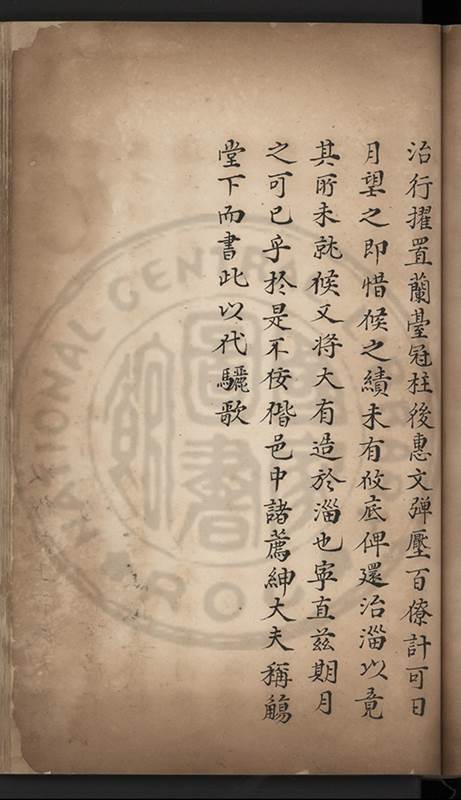 治行擢置蘭臺冠柱後惠文彈壓百僚計可日
月望之即惜候之績未有攸底俾還治淄以竟
其所未就候又將大有造於淄也寧直玆期月
之可已乎於是不佞偕邑中諸薦紳大夫稱觴
堂下而書此以代驪歌